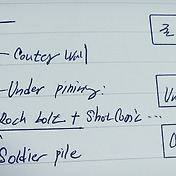 - Couter Wall
- Under pining:
Rock bolt + Shotconic ...
Soldier pile
Un